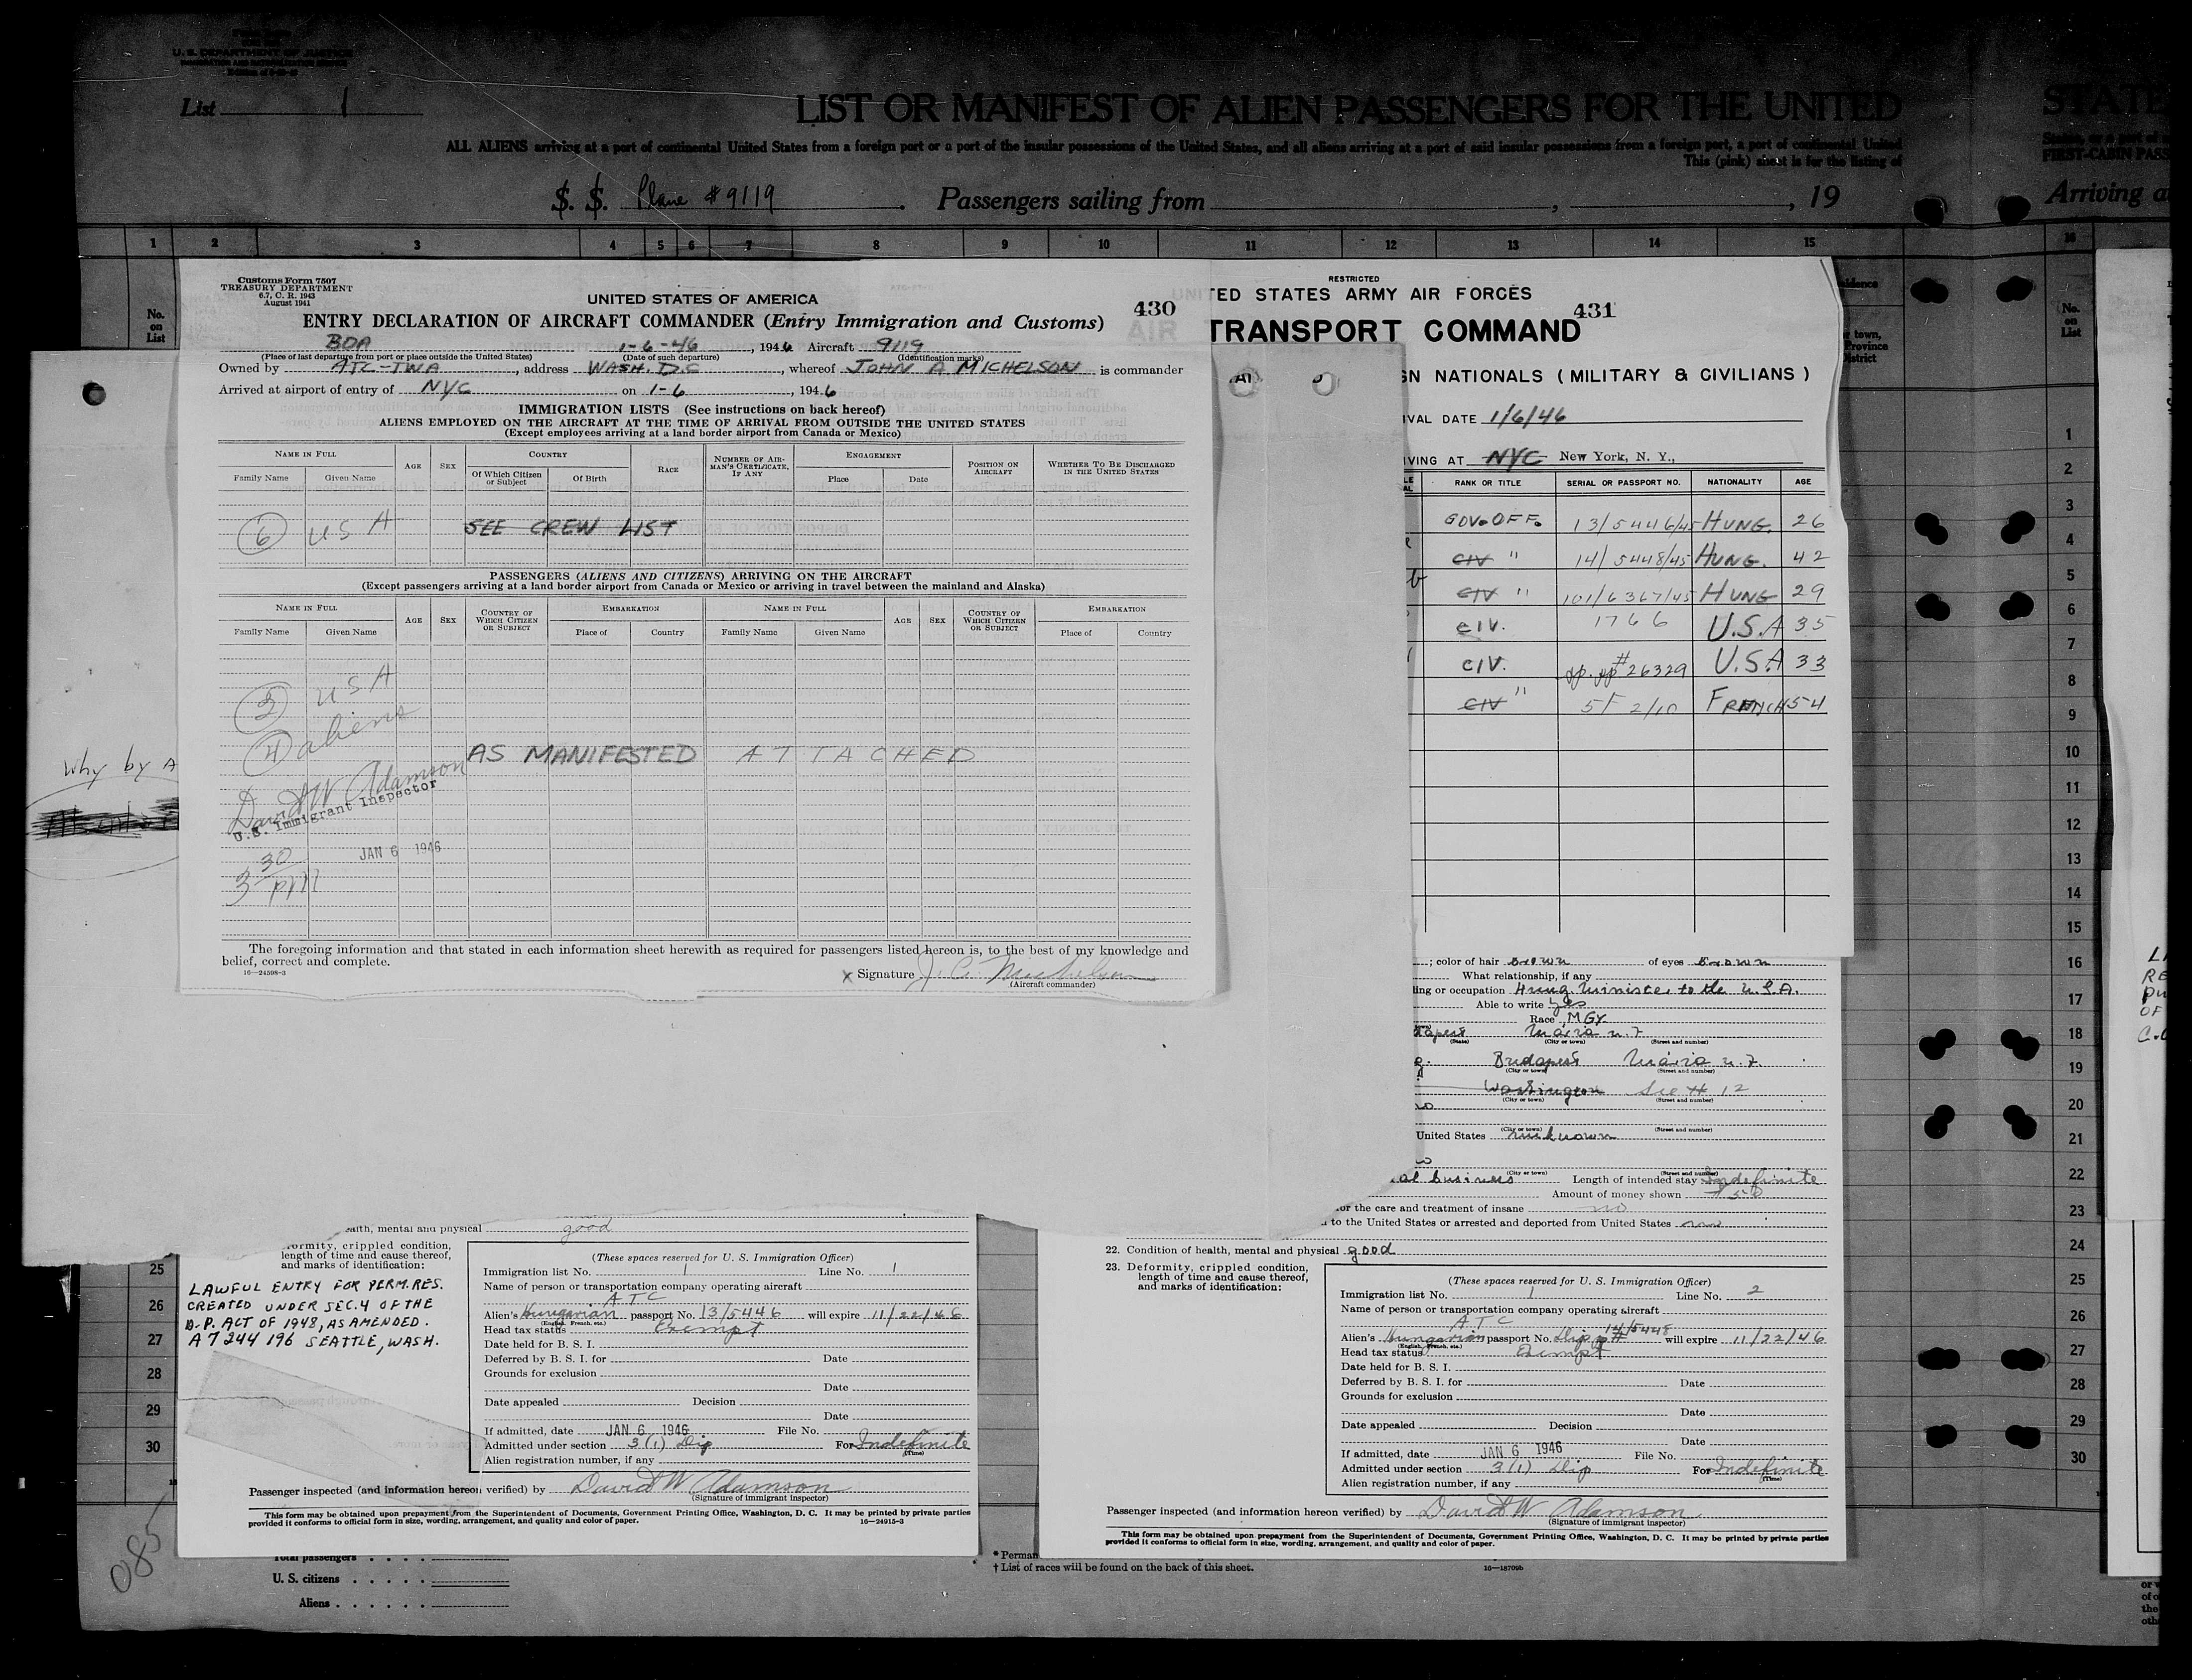 U. S. DEPARTMENT OF JUSTICE
IMMIGRATION AND NATURALIZATION SERVICE
List 1
LIST OR MANIFEST OF ALIEN PASSENGERS FOR THE UNITED
STATE
ALL ALIENS arriving at a port of continental United States from a foreign port or a port of the insular possessions of the United States, and all aliens arriving at a port of said insular possessions from a foreign port, a port of continental United
This (pink) sheet is for the listing of
FIRST-CABIN PASS
S. S. Plane #9119. Passengers sailing from , , 19
Arriving a
1 2 3 4 5 6 7 8 9 10 11 12 13 14 15 16
No. on List
Customs Form 7507
TREASURY DEPARTMENT
6.7, C. R. 1943
August 1941
UNITED STATES OF AMERICA
430
ENTRY DECLARATION OF AIRCRAFT COMMANDER (Entry Immigration and Customs)
BDA 1-6-46, 1946 Aircraft 9119
(Place of last departure from port or place outside the United States) (Date of such departure) (Identification marks)
Owned by ATC-TWA, address WASH. D.C, whereof JOHN A MICHELSON is commander
Arrived at airport of entry of NYC on 1-6, 1946
IMMIGRATION LISTS (See instructions on back hereof)
ALIENS EMPLOYED ON THE AIRCRAFT AT THE TIME OF ARRIVAL FROM OUTSIDE THE UNITED STATES
(Except employees arriving at a land border airport from Canada or Mexico)
NAME IN FULL AGE SEX COUNTRY RACE NUMBER OF AIRMAN'S CERTIFICATE, IF ANY ENGAGEMENT POSITION ON AIRCRAFT WHETHER TO BE DISCHARGED IN THE UNITED STATES
Family Name Given Name Of Which Citizen or Subject Of Birth Place Date
6 USA SEE CREW LIST
PASSENGERS (ALIENS AND CITIZENS) ARRIVING ON THE AIRCRAFT
(Except passengers arriving at a land border airport from Canada or Mexico or arriving in travel between the mainland and Alaska)
NAME IN FULL AGE SEX COUNTRY OF WHICH CITIZEN OR SUBJECT EMBARKATION NAME IN FULL AGE SEX COUNTRY OF WHICH CITIZEN OR SUBJECT EMBARKATION
Family Name Given Name Place of Country Family Name Given Name Place of Country
USA
4 aliens
AS MANIFESTED ATTACHED
David W Adamson
U.S. Immigrant Inspector
JAN 6 1946
3 30 PM
The foregoing information and that stated in each information sheet herewith as required for passengers listed hereon is, to the best of my knowledge and
belief, correct and complete.
16-24598-3
x Signature
(Aircraft commander)
Why by A
RESTRICTED
UNITED STATES ARMY AIR FORCES
431
AIR TRANSPORT COMMAND
GN NATIONALS (MILITARY & CIVILIANS)
IVAL DATE 1/6/46
IVING AT NYC New York, N. Y.,
RANK OR TITLE SERIAL OR PASSPORT NO. NATIONALITY AGE
GOV. OFF. 13/5446/45 HUNG. 26
CIV " 14/5448/45 HUNG. 42
CIV " 101/6367/45 HUNG 29
CIV. 1766 U.S.A 35
CIV. #26329 U.S.A 33
CIV " 5F 2/10 FRENCH 54
; color of hair Brown of eyes Brown
What relationship, if any
ing or occupation Hung. Minister to the U.S.A.
Able to write yes
Race MGY
apest Mária u. 7
(State) (City or town) (Street and number)
Budapest Mária u. 7
(City or town) (Street and number)
Washington See # 12
(City or town) (Street and number)
United States unknown
(City or town) (Street and number)
al business Length of intended stay Indefinite
Amount of money shown $50
or the care and treatment of insane no
to the United States or arrested and deported from United States no
22. Condition of health, mental and physical good
23. Deformity, crippled condition,
length of time and cause thereof,
and marks of identification:
(These spaces reserved for U. S. Immigration Officer)
Immigration list No. 1 Line No. 2
Name of person or transportation company operating aircraft
ATC
Alien's Hungarian passport No. Dip # 14/5448 will expire 11/22/46
(English, French, etc.)
Head tax status Exempt
Date held for B. S. I.
Deferred by B. S. I. for Date
Grounds for exclusion
Date
Date appealed Decision
Date
If admitted, date JAN 6 1946 File No.
Admitted under section 3(1) Dip For Indefinite
(Time)
Alien registration number, if any
Passenger inspected (and information hereon verified) by David W Adamson
(Signature of immigrant inspector)
This form may be obtained upon prepayment from the Superintendent of Documents, Government Printing Office, Washington, D. C. It may be printed by private parties
provided it conforms to official form in size, wording, arrangement, and quality and color of paper.
ealth, mental and physical good
formity, crippled condition,
length of time and cause thereof,
and marks of identification:
LAWFUL ENTRY FOR PERM. RES.
CREATED UNDER SEC. 4 OF THE
D.P. ACT OF 1948, AS AMENDED.
A7 244 196 SEATTLE, WASH.
(These spaces reserved for U. S. Immigration Officer)
Immigration list No. 1 Line No. 1
Name of person or transportation company operating aircraft
ATC
Alien's Hungarian passport No. 13/5446 will expire 11/22/46
(English, French, etc.)
Head tax status Exempt
Date held for B. S. I.
Deferred by B. S. I. for Date
Grounds for exclusion
Date
Date appealed Decision
Date
If admitted, date JAN 6 1946 File No.
Admitted under section 3(1) Dip For Indefinite
(Time)
Alien registration number, if any
Passenger inspected (and information hereon verified) by David W Adamson
(Signature of immigrant inspector)
This form may be obtained upon prepayment from the Superintendent of Documents, Government Printing Office, Washington, D. C. It may be printed by private parties
provided it conforms to official form in size, wording, arrangement, and quality and color of paper.
16-24915-3
085
Total passengers
U. S. citizens
Aliens
* Perman
† List of races will be found on the back of this sheet.
16-18709b